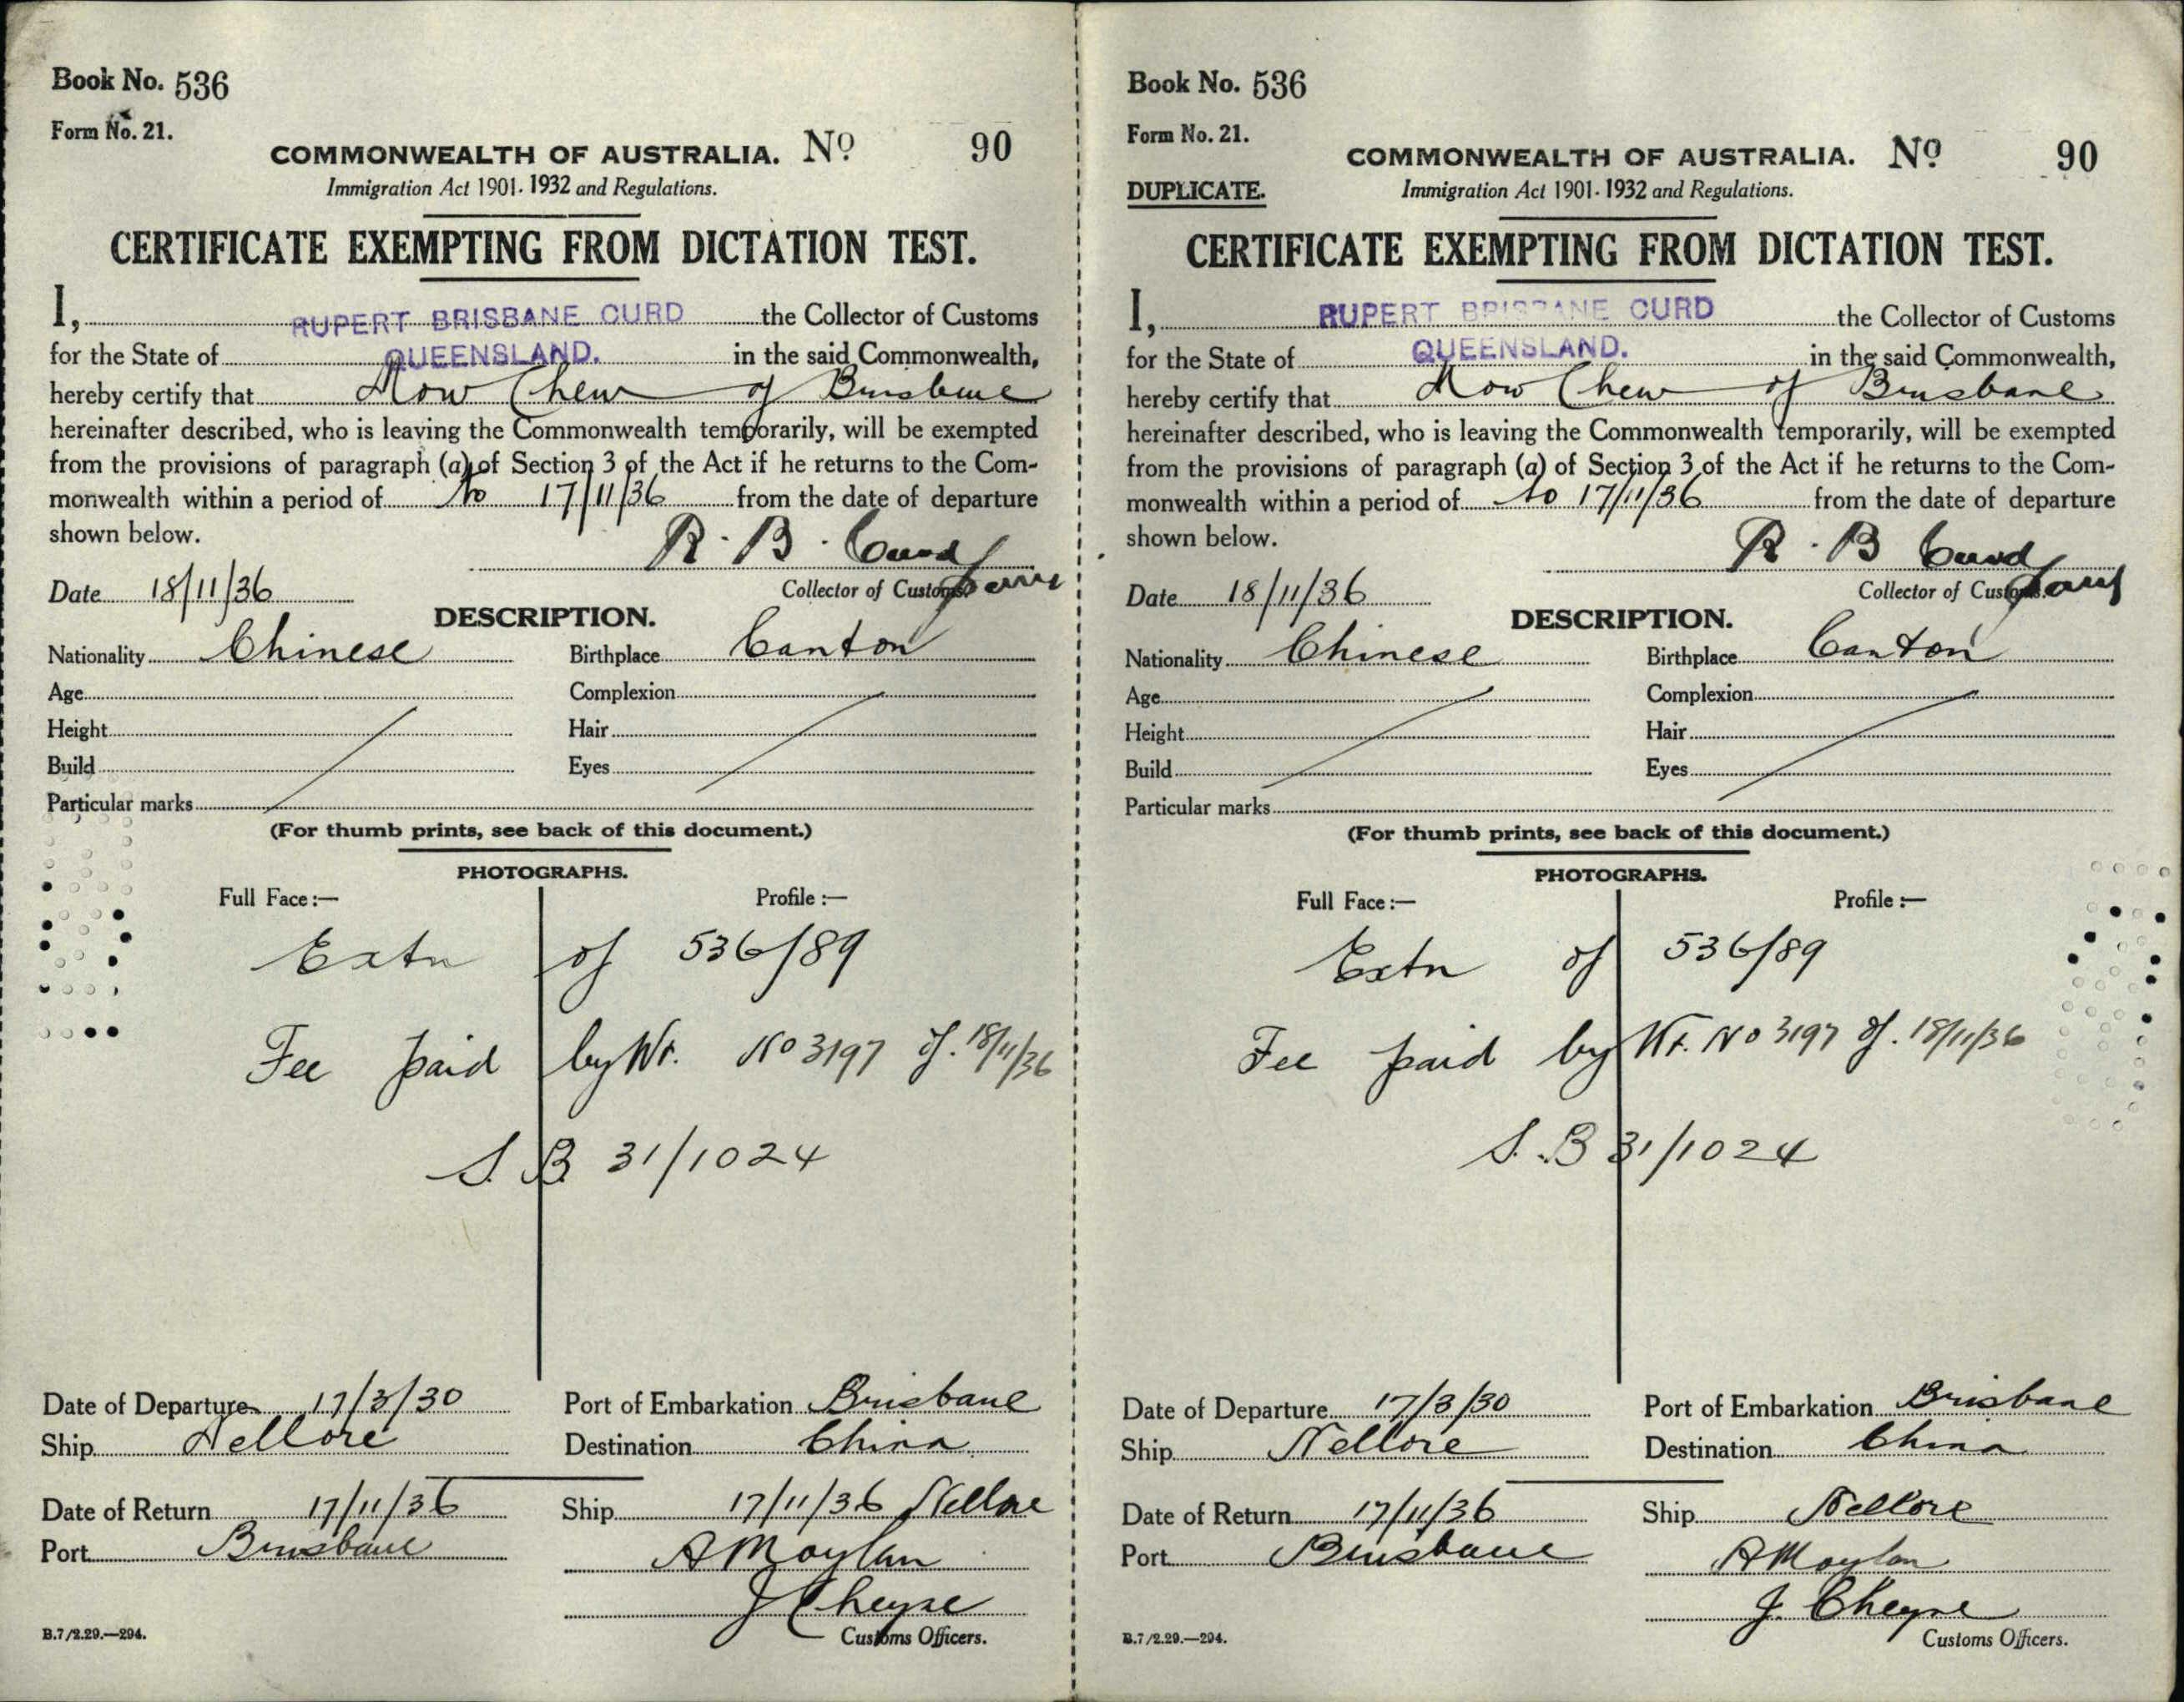 Book No. 536
Form No. 21.
COMMONWEALTH OF AUSTRALIA. No 90
Immigration Act 1901-1932 and Regulations.
CERTIFICATE EXEMPTING FROM DICTATION TEST.
I, RUPERT BRISBANE CURD the Collector of Customs
for the State of QUEENSLAND. in the said Commonwealth,
hereby certify that Mow Chew of Brisbane
hereinafter described, who is leaving the Commonwealth temporarily, will be exempted
from the provisions of paragraph (a) of Section 3 of the Act if he returns to the Com-
monwealth within a period of to 17/11/36 from the date of departure
shown below.
R. B. Curd
Date 18/11/36 Collector of Customs.
DESCRIPTION.
Nationality Chinese Birthplace Canton
Age Complexion
Height Hair
Build Eyes
Particular marks
(For thumb prints, see back of this document.)
PHOTOGRAPHS.
Full Face:— Profile:—
Extn of 536/89
Fee paid by Wt. No 3197 of 18/11/36
S.B 31/1024
Date of Departure 17/3/30 Port of Embarkation Brisbane
Ship Nellore Destination China
Date of Return 17/11/36 Ship 17/11/36 Nellore
Port Brisbane A Moylan
J Cheyne
B.7/2.29.—294. Customs Officers.
Book No. 536
Form No. 21.
COMMONWEALTH OF AUSTRALIA. No 90
DUPLICATE. Immigration Act 1901-1932 and Regulations.
CERTIFICATE EXEMPTING FROM DICTATION TEST.
I, RUPERT BRISBANE CURD the Collector of Customs
for the State of QUEENSLAND. in the said Commonwealth,
hereby certify that Mow Chew of Brisbane
hereinafter described, who is leaving the Commonwealth temporarily, will be exempted
from the provisions of paragraph (a) of Section 3 of the Act if he returns to the Com-
monwealth within a period of to 17/11/36 from the date of departure
shown below.
R. B Curd
Date 18/11/36 Collector of Customs.
DESCRIPTION.
Nationality Chinese Birthplace Canton
Age Complexion
Height Hair
Build Eyes
Particular marks
(For thumb prints, see back of this document.)
PHOTOGRAPHS.
Full Face:— Profile:—
Extn of 536/89
Fee paid by Wt. No 3197 of 18/11/36
S.B 31/1024
Date of Departure 17/3/30 Port of Embarkation Brisbane
Ship Nellore Destination China
Date of Return 17/11/36 Ship Nellore
Port Brisbane A Moylan
J. Cheyne
B.7/2.29.—294. Customs Officers.